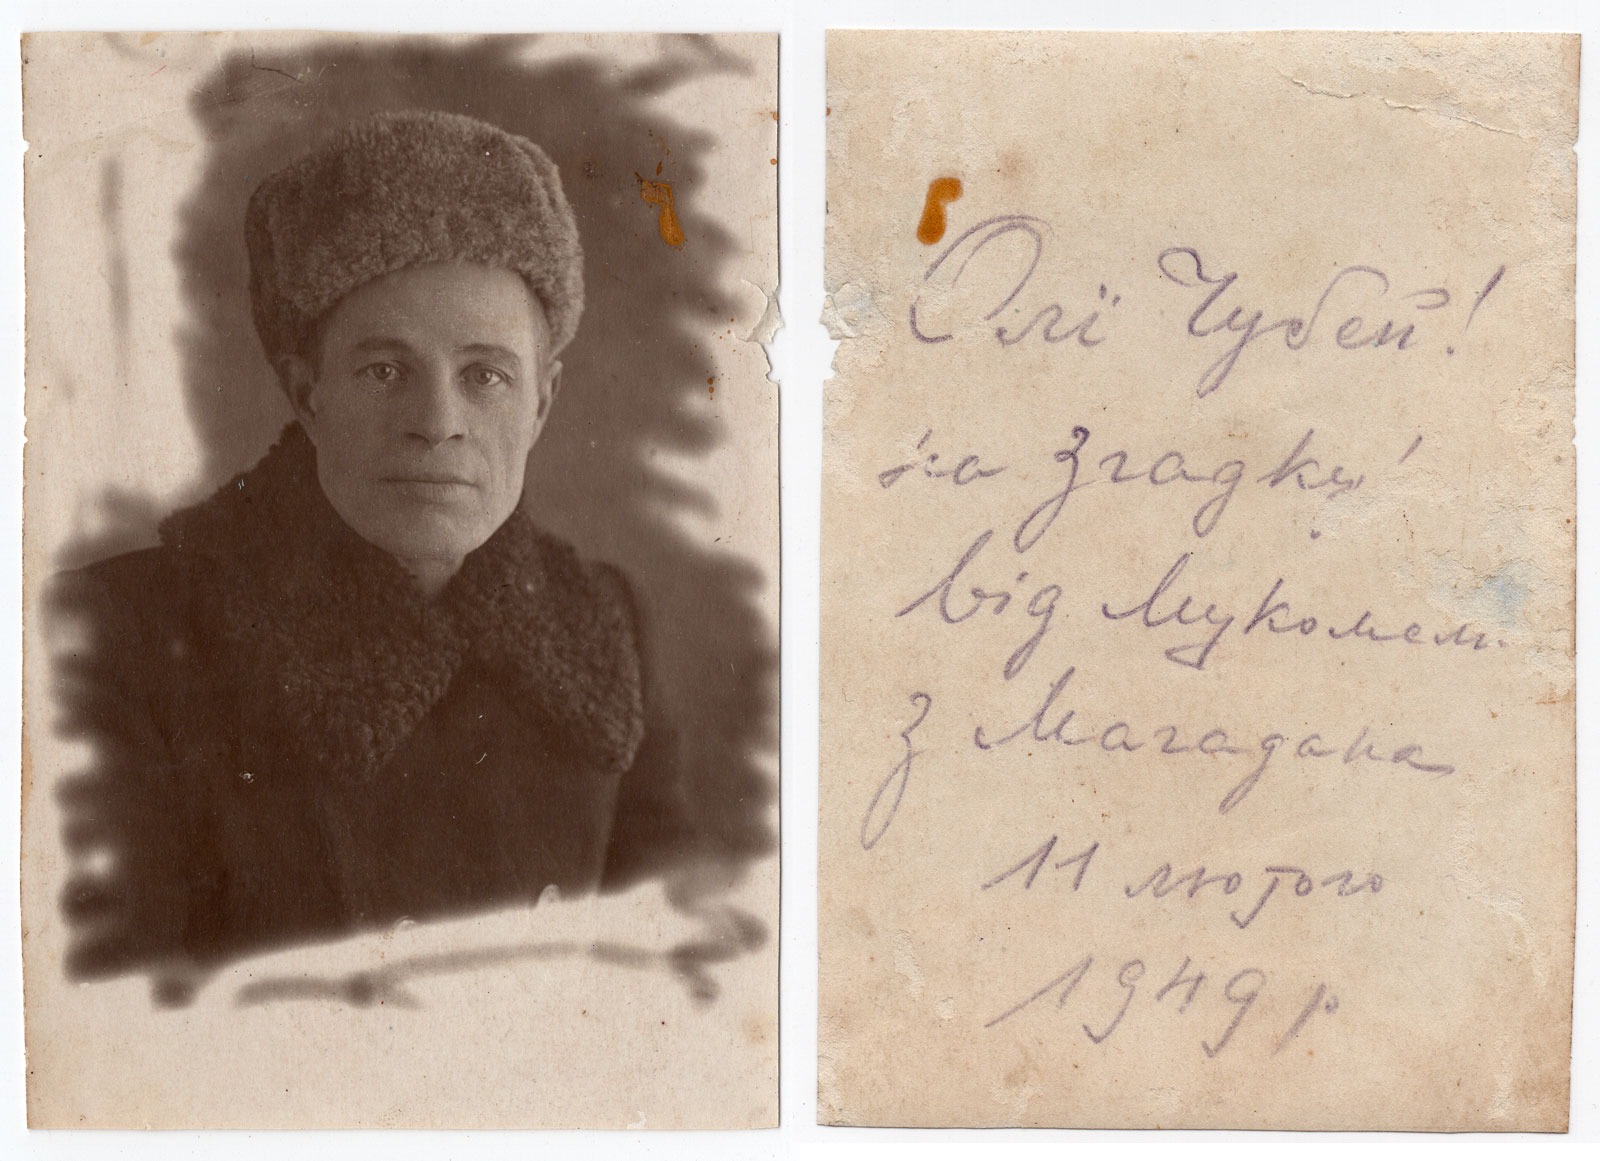 Олі Чубей!
на згадку!
від Мукомел.
з Магадана
11 лютого
1949 р